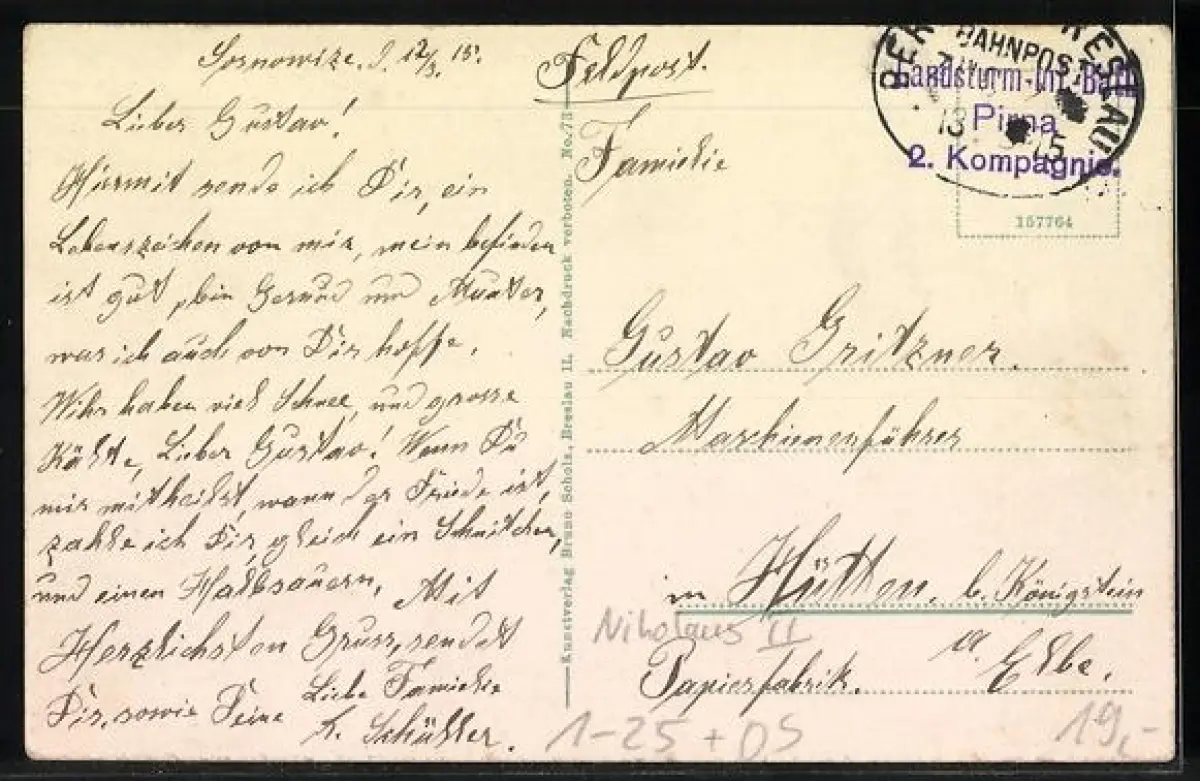 Sosnowize. d. 12/3. 15.
Lieber Gustav!
Hiermit sende ich Dir, ein
Lebenszeichen von mir, mein befinden
ist gut, bin Gesund und Munter,
was ich auch von Dir hoffe.
Wihr haben viel Schnee, und grosse
Kälte, Lieber Gustav! Wenn Du
mir mitheilst, wann der Friede ist,
zahle ich Dir, gleich ein Schnitchen,
und einen Halbsauern. Mit
Herzlichsten Gruss, sendet
Dir, sowie Deine Liebe Familie
K. Schüller.
Kunstverlag Bruno Scholz, Breslau II. Nachdruck verboten. No. 73
Feldpost.
Familie
BAHNPOST
BRESLAU
13 15
Landsturm-Inf. Batl.
Pirna
2. Kompagnie.
157764
Gustav Gritzner.
Maschienenführer
in Hütten. b. Königstein
a. Elbe.
Papierfabrik.
Nikolaus II
1-25 + DS
19,-